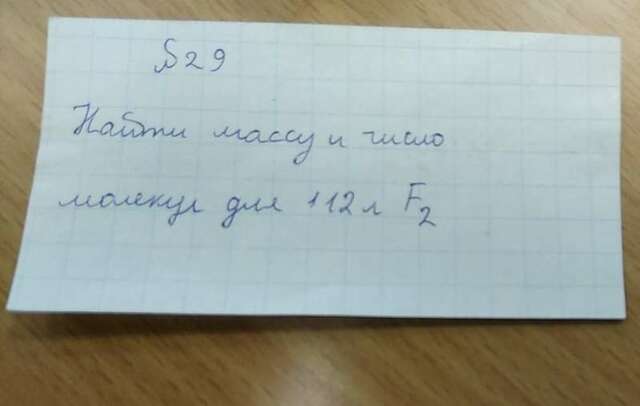 №29
Найти массу и число
молекул для 112л F₂